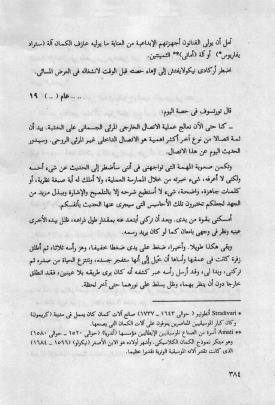 آمل أن يولي الفنانون أجهزتهم الإبداعية من العناية ما يوليه عازف الكمان آلة (ستراد
يفاريوس*) أو آلة (أماتي**) الثمينتين.
اضطر أركادي نيكولايفتش إلى إنهاء حصته قبل الوقت لانشغاله في العرض المسائي.
... عام (..) ١٩
قال تورتسوف في حصة اليوم:
ـ كنا حتى الآن نعالج عملية الاتصال الخارجي المرئي الجسماني على الخشبة. بيد أن
ثمة اتصالا من نوع آخر أكثر أهمية هو الاتصال الداخلي غير المرئي الروحي. وسيدور
الحديث اليوم عن هذا الاتصال.
وتكمن صعوبة المهمة التي تواجهني في أنني سأضطر إلى الحديث عن شيء أحسه
ولكني لا أعرفه، شيء خبرته من خلال الممارسة العملية، ولا أملك له أية صيغة نظرية، أو
كلمات جاهزة، واضحة، شيء لا أستطيع شرحه إلا بالتلميح والإشارة وببذل مزيد من
الجهد لجعلكم تختبرون تلك الأحاسيس التي سيجري عنها الحديث بأنفسكم.
أمسكني بقوة من يدي. وبعد أن تركني أبتعد عنه بمقدار طول ذراعه، ظل يبده الأخرى
عينه ونظر في وجهي بامعان كما لو كان يريد رسمه.
وبقي هكذا طويلا. وأخيراً، ضغط على يدي ضغطا خفيفا، وهز رأسه ثلاثا، ثم أطلق
زفرة كانت في عمقها وكأنها
تركني، وبدا لي، وقد أرسل رأسه عبر كتفه أنه كان يرى طريقه بلا عينين، فقد انطلق
خارجا دون أن ينظر بهما، وظل يسلط على نورهما حتى آخر لحظة.
* Stradivari أنطونيو (حوالي ١٦٤٣ ـ ١٧٣٧) صانع آلات كمان كان يعمل في مدينة (كريمونا)
وكان كبار الموسيقيين المعاصرين يعزفون على آلات الكمان التي يصنعها.
** Amati أسرة من الصناع الموسيقيين الإيطاليين مؤسسها (أندريا) (حوالي ١٥٢٠ ـ حوالي ١٥٨٠)
وهو مبتكر نموذج الكمان الكلاسيكي. وأشهر أولاده هو الابن الأصغر (نيكولو) (١٥٩٦ ـ ١٦٨٤)
الذي كانت تقدر آلاته الموسيقية الوترية تقديرا عظيما.
٣٨٤